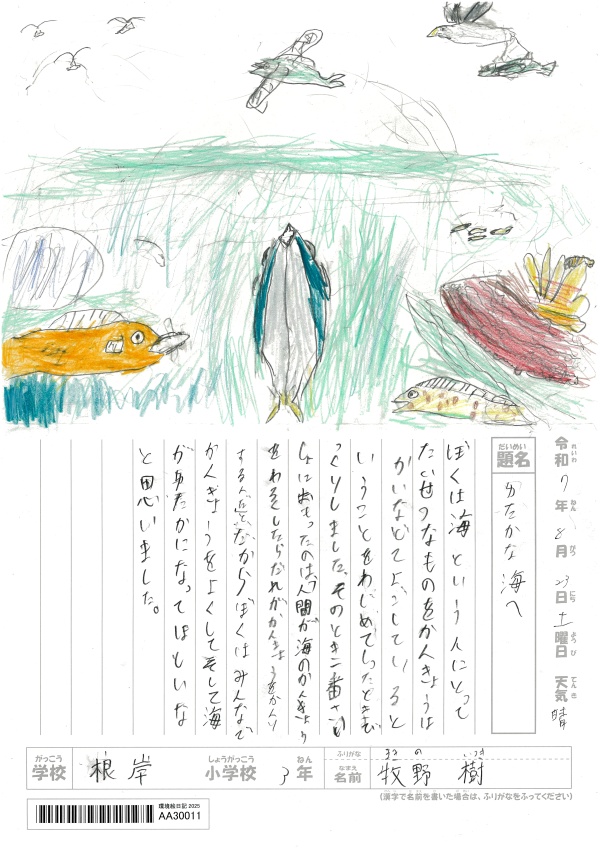 令和7年8月23日土曜日 天気 晴
れいわ ねん がつ にち ようび てんき
だいめい
題名 ゆたかな海へ
ぼくは海という人にとって
たいせつなものをかんきょうは
かいなどでよごしていると
いうことをわじめてしったときび
っくりしました。そのとき一番さい
しょにおもったのは、人間が海のかんきょう
をわるくしたらだれがかんきょうを
するんだとだからぼくはみんなで
かんきょうをよくしてそして海
がゆたかになってほしいな
と思いました。
がっこう しょうがっこう ねん
学校 根岸 小学校 3年
ふりがな まきの いつき
なまえ
名前 牧野 樹
(漢字で名前を書いた場合は、ふりがなをふってください)
環境絵日記 2025
AA30011